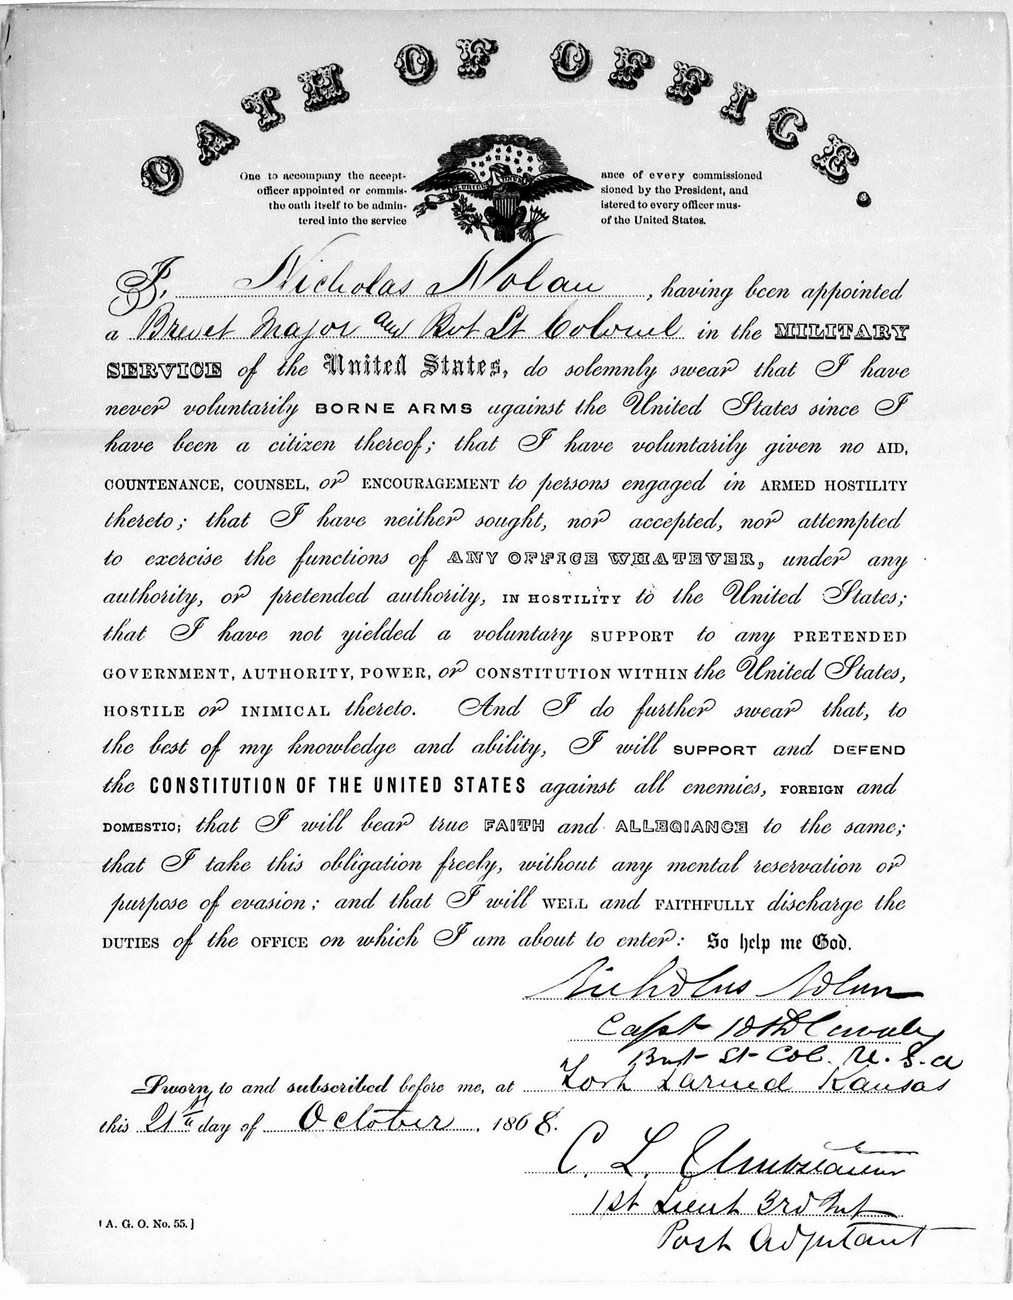 OATH OF OFFICE.
One to accompany the acceptance of every commissioned
officer appointed or commissioned by the President, and
the oath itself to be administered to every officer mustered
into the service of the United States.
E PLURIBUS UNUM
I, Nicholas Nolan, having been appointed
a Brevet Major and Bvt Lt Colonel in the MILITARY
SERVICE of the United States, do solemnly swear that I have
never voluntarily BORNE ARMS against the United States since I
have been a citizen thereof; that I have voluntarily given no AID,
COUNTENANCE, COUNSEL, or ENCOURAGEMENT to persons engaged in ARMED HOSTILITY
thereto; that I have neither sought, nor accepted, nor attempted
to exercise the functions of ANY OFFICE WHATEVER, under any
authority, or pretended authority, IN HOSTILITY to the United States;
that I have not yielded a voluntary SUPPORT to any PRETENDED
GOVERNMENT, AUTHORITY, POWER, or CONSTITUTION WITHIN the United States,
HOSTILE or INIMICAL thereto. And I do further swear that, to
the best of my knowledge and ability, I will SUPPORT and DEFEND
the CONSTITUTION OF THE UNITED STATES against all enemies, FOREIGN and
DOMESTIC; that I will bear true FAITH and ALLEGIANCE to the same;
that I take this obligation freely, without any mental reservation or
purpose of evasion; and that I will WELL and FAITHFULLY discharge the
DUTIES of the OFFICE on which I am about to enter: So help me God.
Nicholas Nolan
Capt 10th Cavalry
Bvt Lt Col. U.S.A
Sworn to and subscribed before me, at Fort Larned Kansas
this 21st day of October, 1868.
C. L.
1st Lieut 3rd Inf
Post Adjutant
[A. G. O. No. 55.]